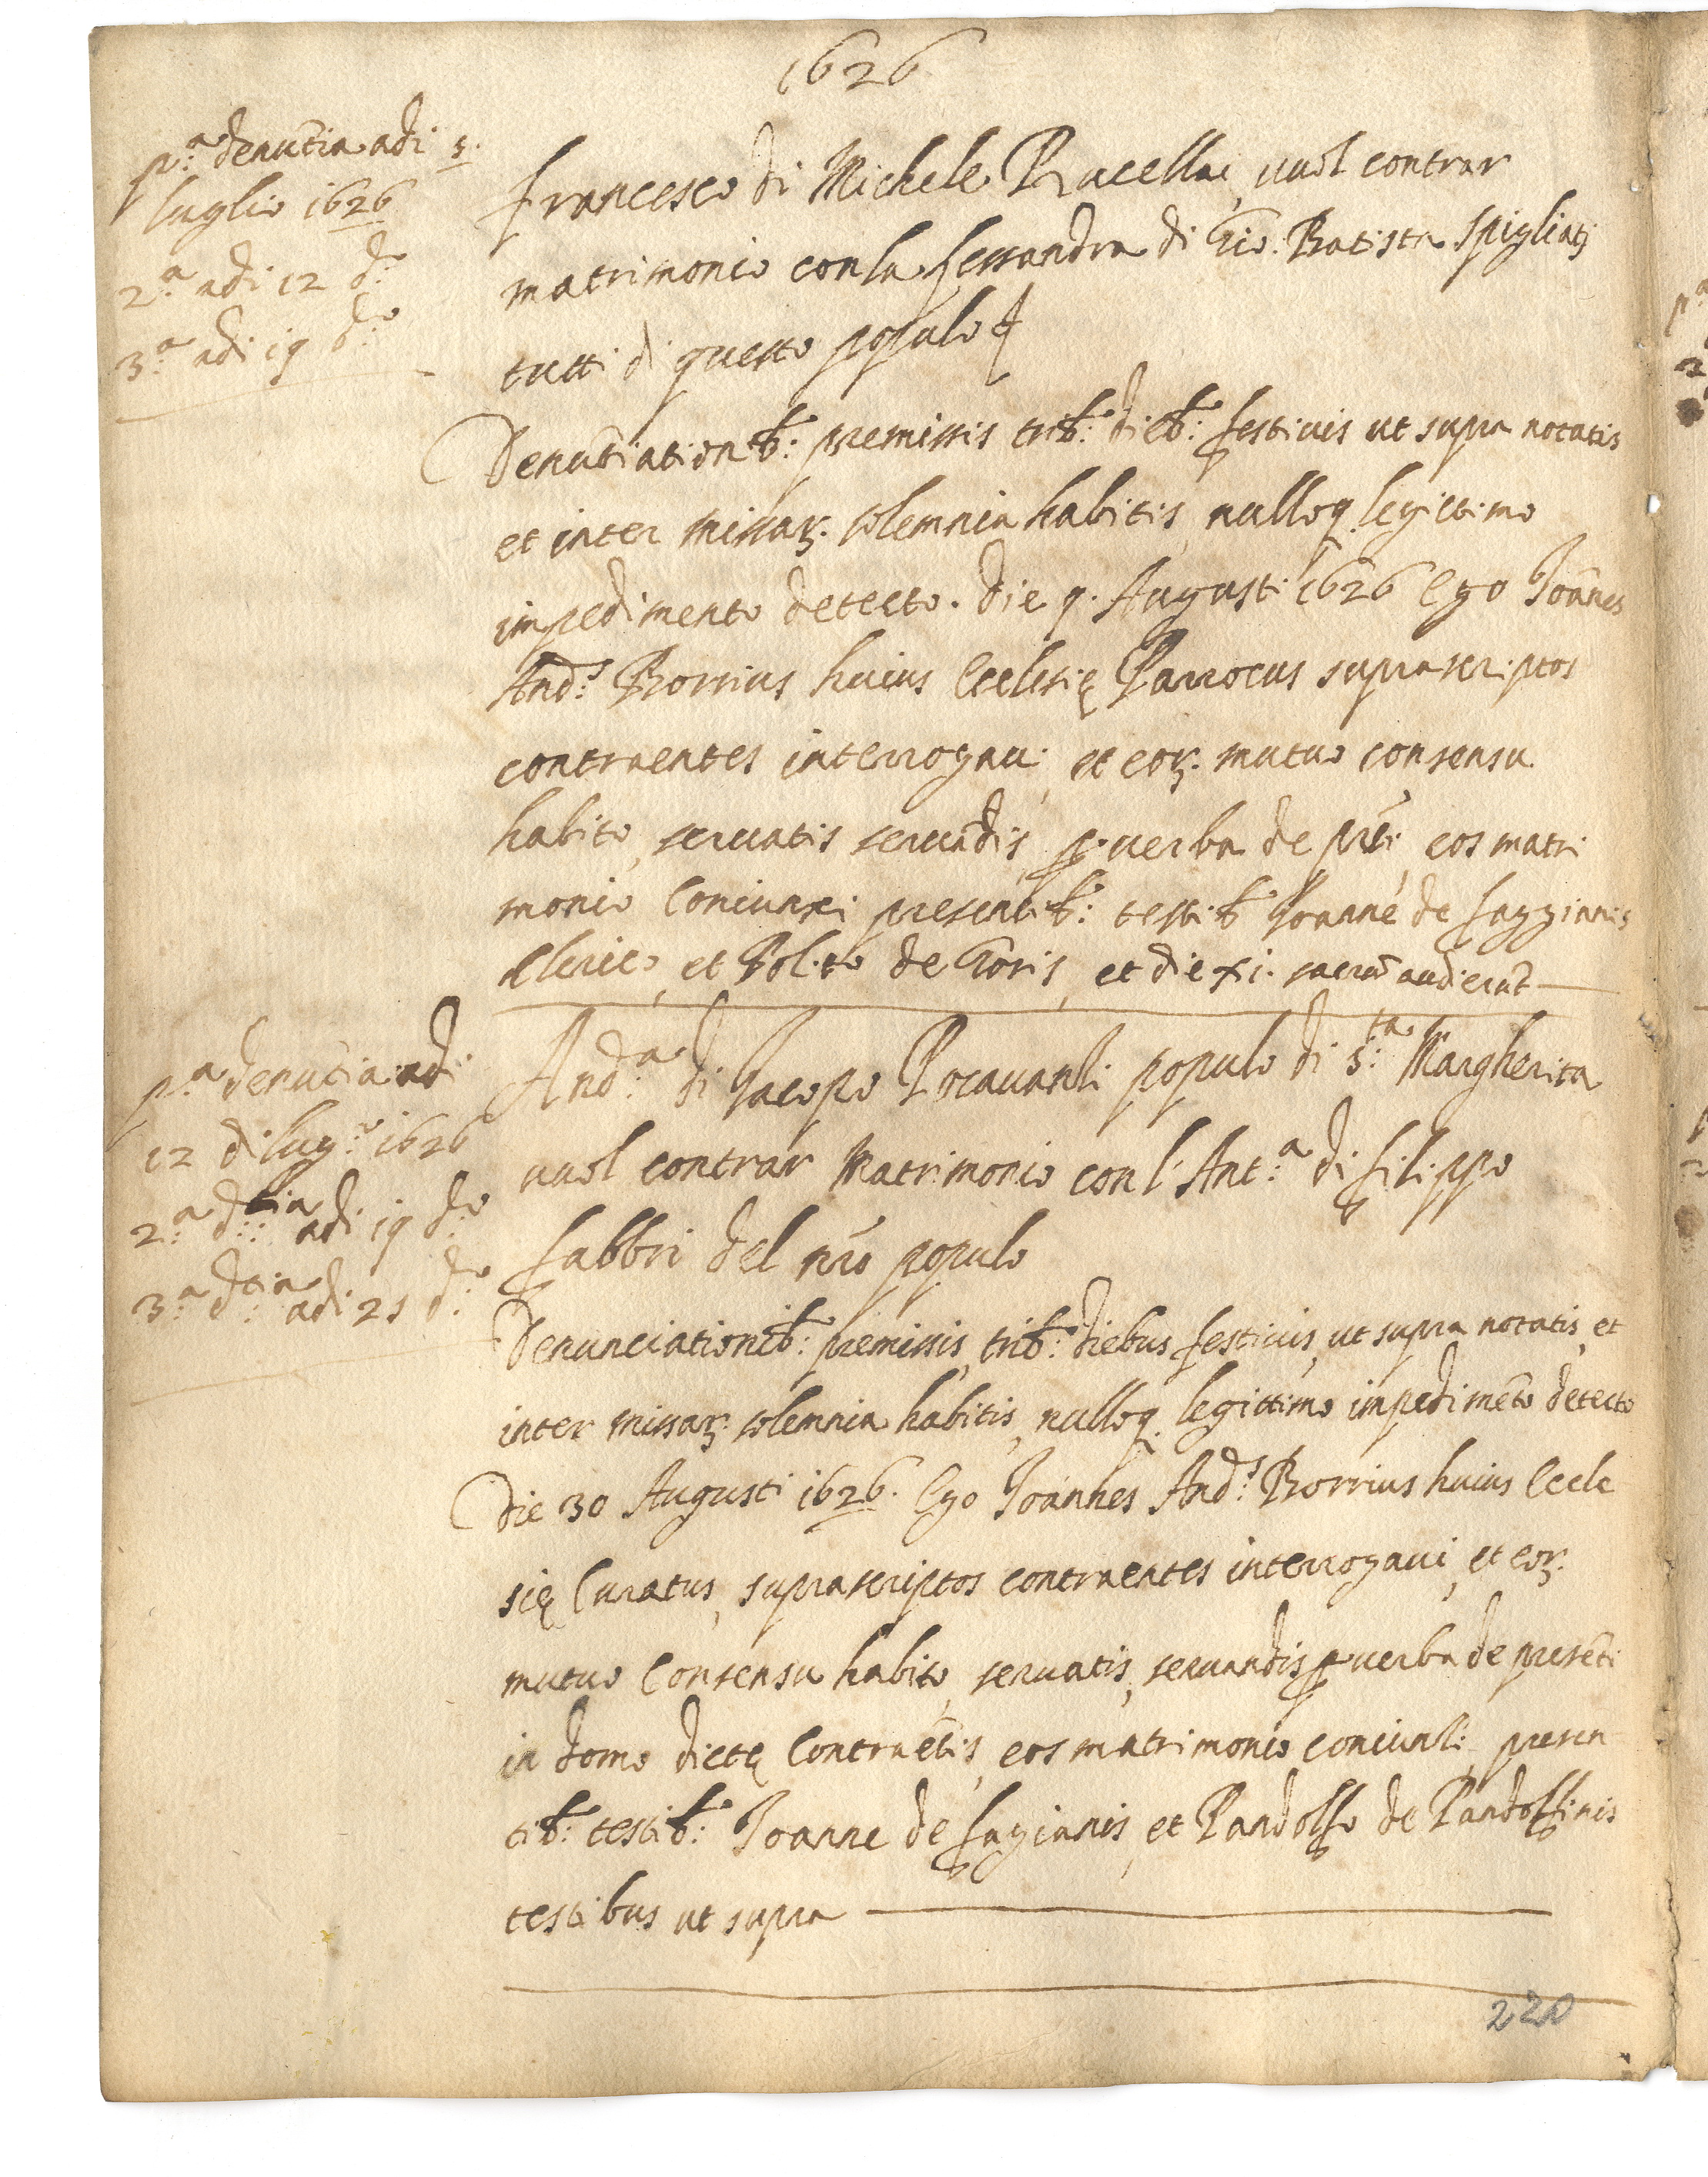 1626
p.a denūtia adi 5.
luglio 1626
2.a adi 12 d.o
3.a adi 19 d.o
Francesco di Michele Rucellai, vuol contrar
matrimonio con la Lessandra di Gio: Batista Spigliati
tutti di questo populo
Denūtiationib: premissis trib: dieb: festivis ut supra notatis
et inter missar. solemnia habitis, nulloq. legittimo
impedimento detecto. Die 9. Augusti 1626 Ego Joānes
And.s Borrius huius Ecclesię Parrocus suprascriptos
contraentes interrogavi, et eor. mutuo consensu
habito, servatis servādis, p. verba de pn̄ti eos matri
monio Coniunxi presentib: testib Joanne de Faggianis
Clerico, et Polito de Goris, et die xi. sacrū audierūt
p.a denūtia adi
12 di lug.o 1626
2.a d.tia adi 19 d.o
3.a d.tia adi 25 d.o
And.a di Jacopo populo di S.ta Margherita
vuol contrar Matrimonio con l'Ant.a di Filippo
Fabbri del nr̄o populo
Denunciationib: premissis, trib: diebus festivis, ut supra notatis, et
inter missar. solemnia habitis, nulloq. legittimo impedimēto detecto
Die 30 Augusti 1626. Ego Joannes And.s Borrius huius Eccle
się Curatus, suprascriptos contraentes interrogavi, et eor.
mutuo Consensu habito, servatis, servandis p verba de presēti
in domo dictę Contraētis, eos matrimonio coniunxi, presen
tib: testib: Joanne de Fagianis, et Pandolfo de Pandolfinis
testibus ut supra
220